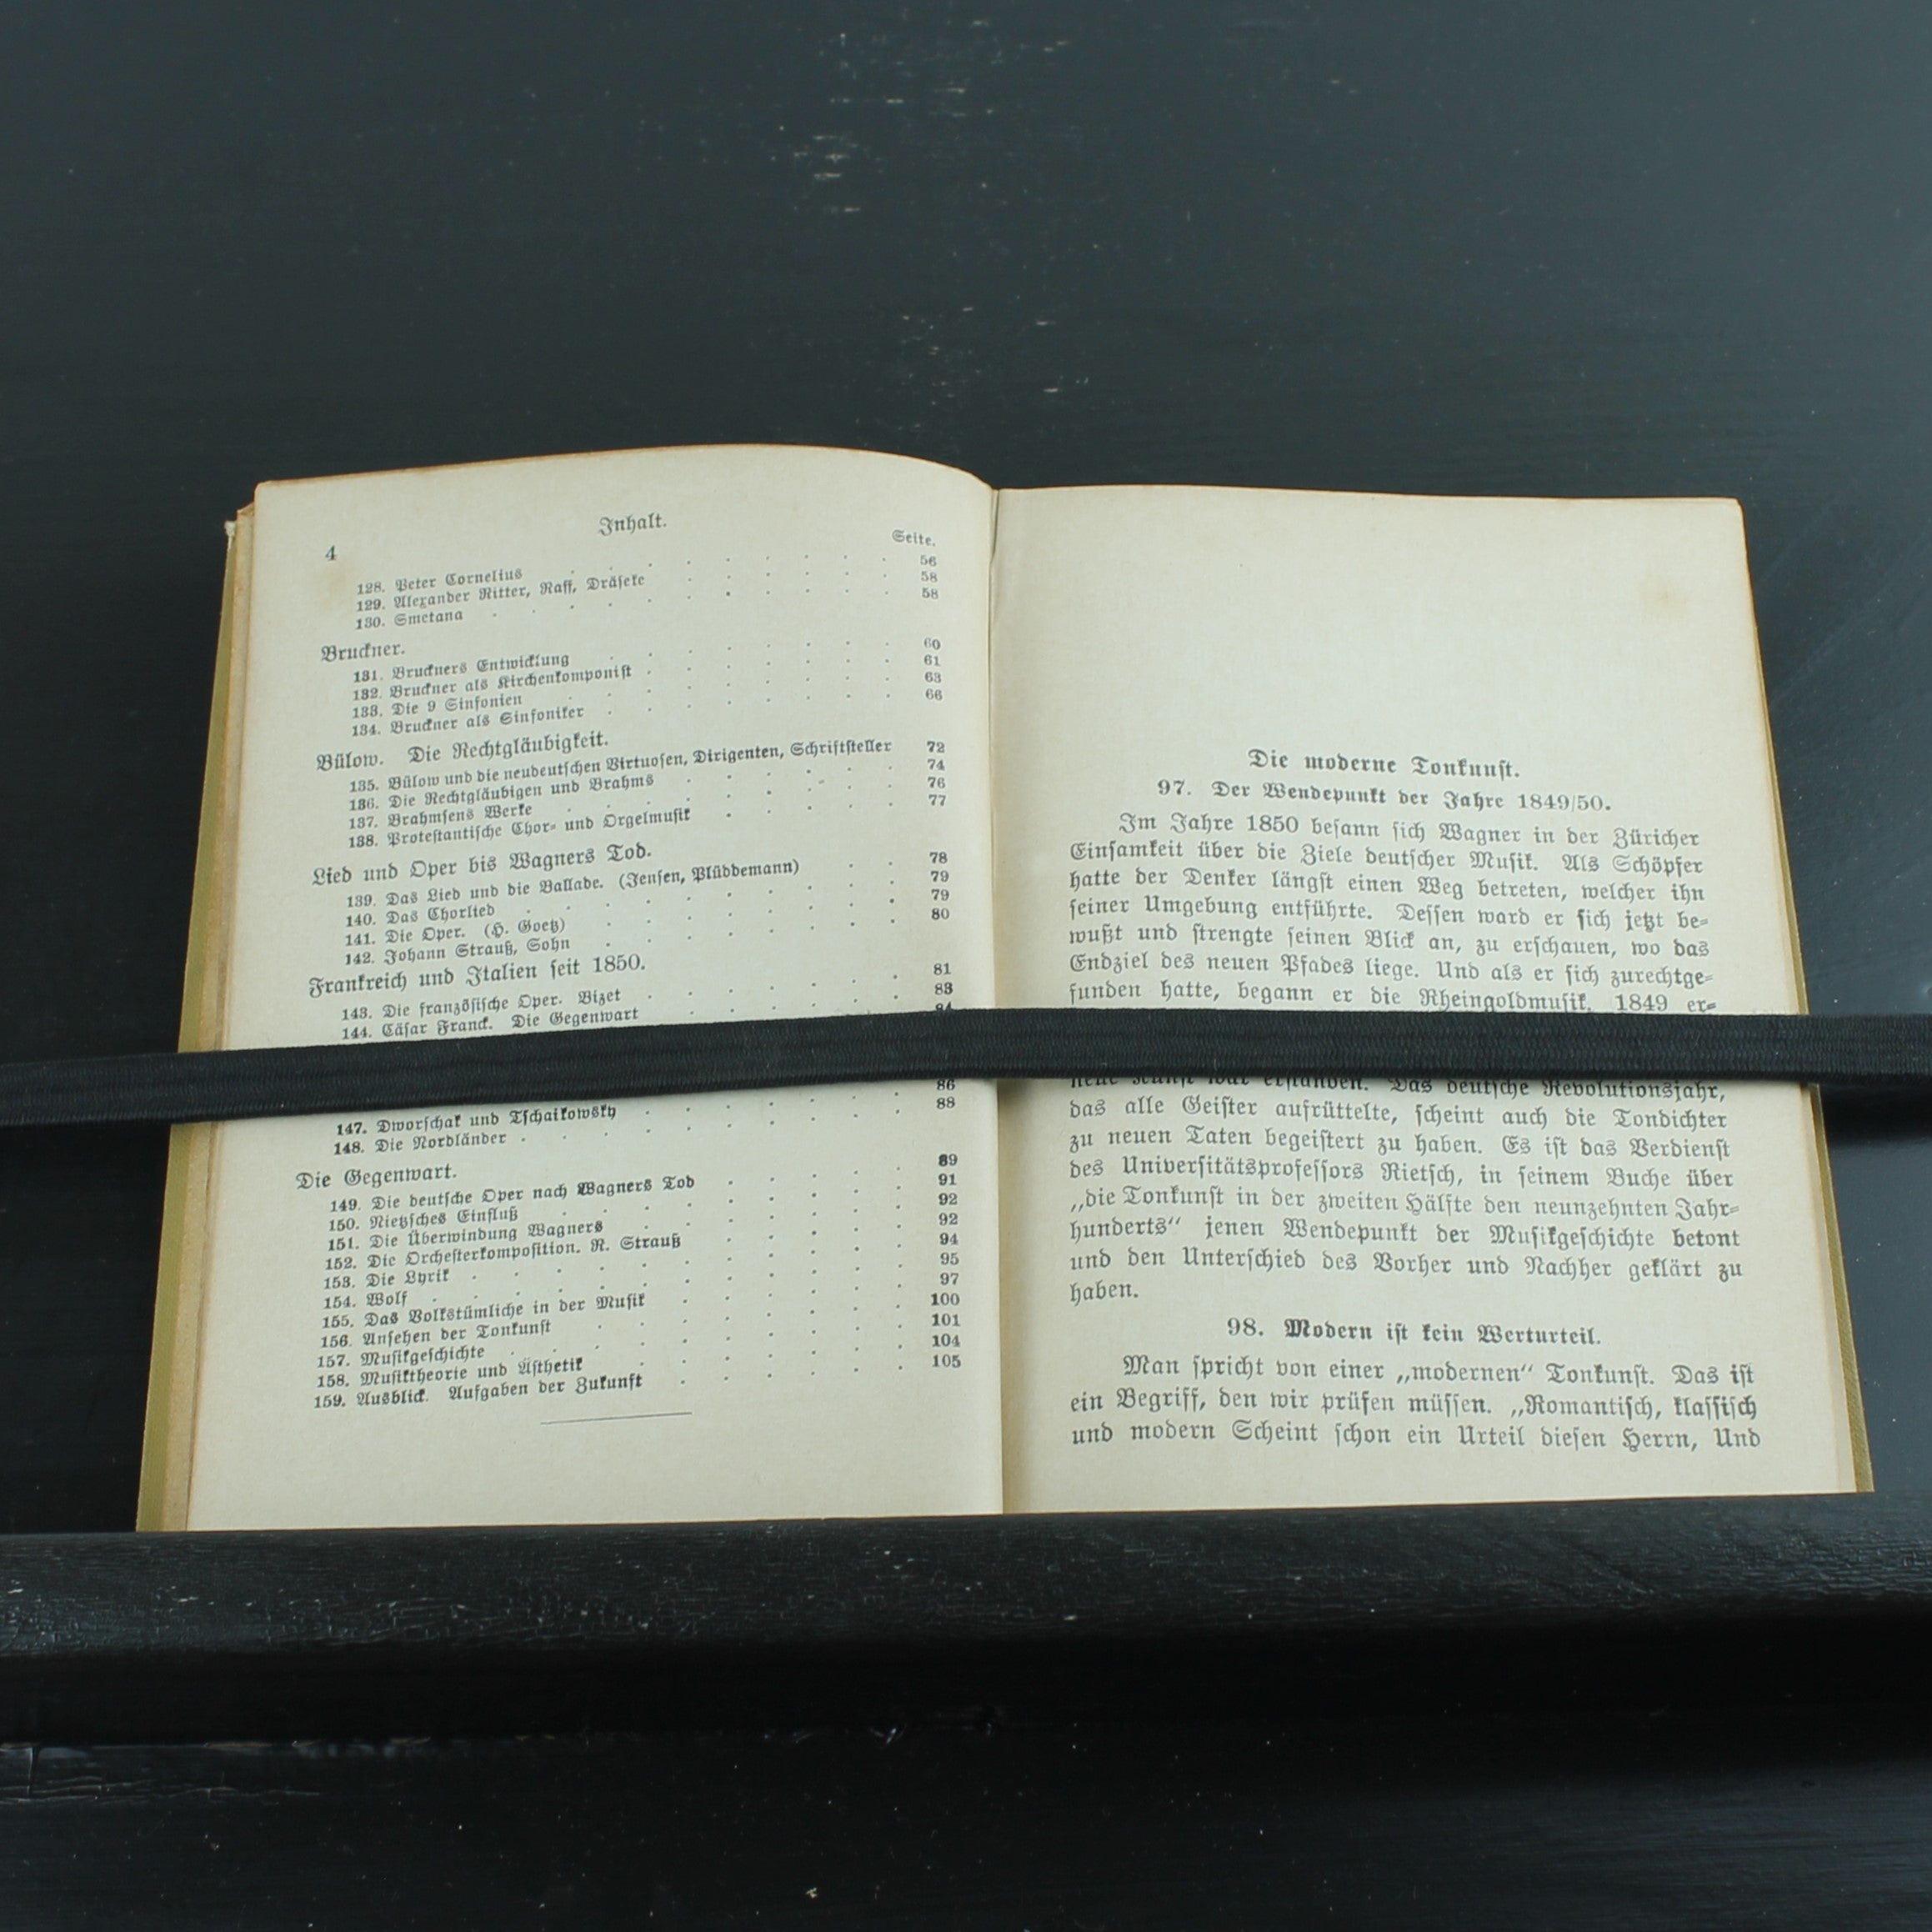 4
Inhalt.
Seite.
128. Peter Cornelius . . . . . . . . . 56
129. Alexander Ritter, Raff, Dräseke . . . . . . 58
130. Smetana . . . . . . . . . . . 58
Bruckner.
131. Bruckners Entwicklung . . . . . . . . 60
132. Bruckner als Kirchenkomponist . . . . . . . 61
133. Die 9 Sinfonien . . . . . . . . . 63
134. Bruckner als Sinfoniker . . . . . . . . 66
Bülow. Die Rechtgläubigkeit.
135. Bülow und die neudeutschen Virtuosen, Dirigenten, Schriftsteller 72
136. Die Rechtgläubigen und Brahms . . . . . . 74
137. Brahmsens Werke . . . . . . . . . 76
138. Protestantische Chor- und Orgelmusik . . . . . 77
Lied und Oper bis Wagners Tod.
139. Das Lied und die Ballade. (Jensen, Plüddemann) . . 78
140. Das Chorlied . . . . . . . . . . 79
141. Die Oper. (H. Goetz) . . . . . . . . 79
142. Johann Strauß, Sohn . . . . . . . . 80
Frankreich und Italien seit 1850.
143. Die französische Oper. Bizet . . . . . . . 81
144. Cäsar Franck. Die Gegenwart . . . . . . 83
84
147. Dworschak und Tschaikowsky . . . . . . . 86
148. Die Nordländer . . . . . . . . . . 88
Die Gegenwart.
149. Die deutsche Oper nach Wagners Tod . . . . . 89
150. Nietzsches Einfluß . . . . . . . . . 91
151. Die Überwindung Wagners . . . . . . . 92
152. Die Orchesterkomposition. R. Strauß . . . . . 92
153. Die Lyrik . . . . . . . . . . . 94
154. Wolf . . . . . . . . . . . . 95
155. Das Volkstümliche in der Musik . . . . . . 97
156. Ansehen der Tonkunst . . . . . . . . 100
157. Musikgeschichte . . . . . . . . . . 101
158. Musiktheorie und Ästhetik . . . . . . . 104
159. Ausblick. Aufgaben der Zukunft . . . . . . 105
Die moderne Tonkunst.
97. Der Wendepunkt der Jahre 1849/50.
Im Jahre 1850 besann sich Wagner in der Züricher
Einsamkeit über die Ziele deutscher Musik. Als Schöpfer
hatte der Denker längst einen Weg betreten, welcher ihn
seiner Umgebung entführte. Dessen ward er sich jetzt be-
wußt und strengte seinen Blick an, zu erschauen, wo das
Endziel des neuen Pfades liege. Und als er sich zurechtge-
funden hatte, begann er die Rheingoldmusik. 1849 er-
neue Kunst war erstanden. Das deutsche Revolutionsjahr,
das alle Geister aufrüttelte, scheint auch die Tondichter
zu neuen Taten begeistert zu haben. Es ist das Verdienst
des Universitätsprofessors Rietsch, in seinem Buche über
„die Tonkunst in der zweiten Hälfte den neunzehnten Jahr-
hunderts“ jenen Wendepunkt der Musikgeschichte betont
und den Unterschied des Vorher und Nachher geklärt zu
haben.
98. Modern ist kein Werturteil.
Man spricht von einer „modernen“ Tonkunst. Das ist
ein Begriff, den wir prüfen müssen. „Romantisch, klassisch
und modern Scheint schon ein Urteil diesen Herrn, Und